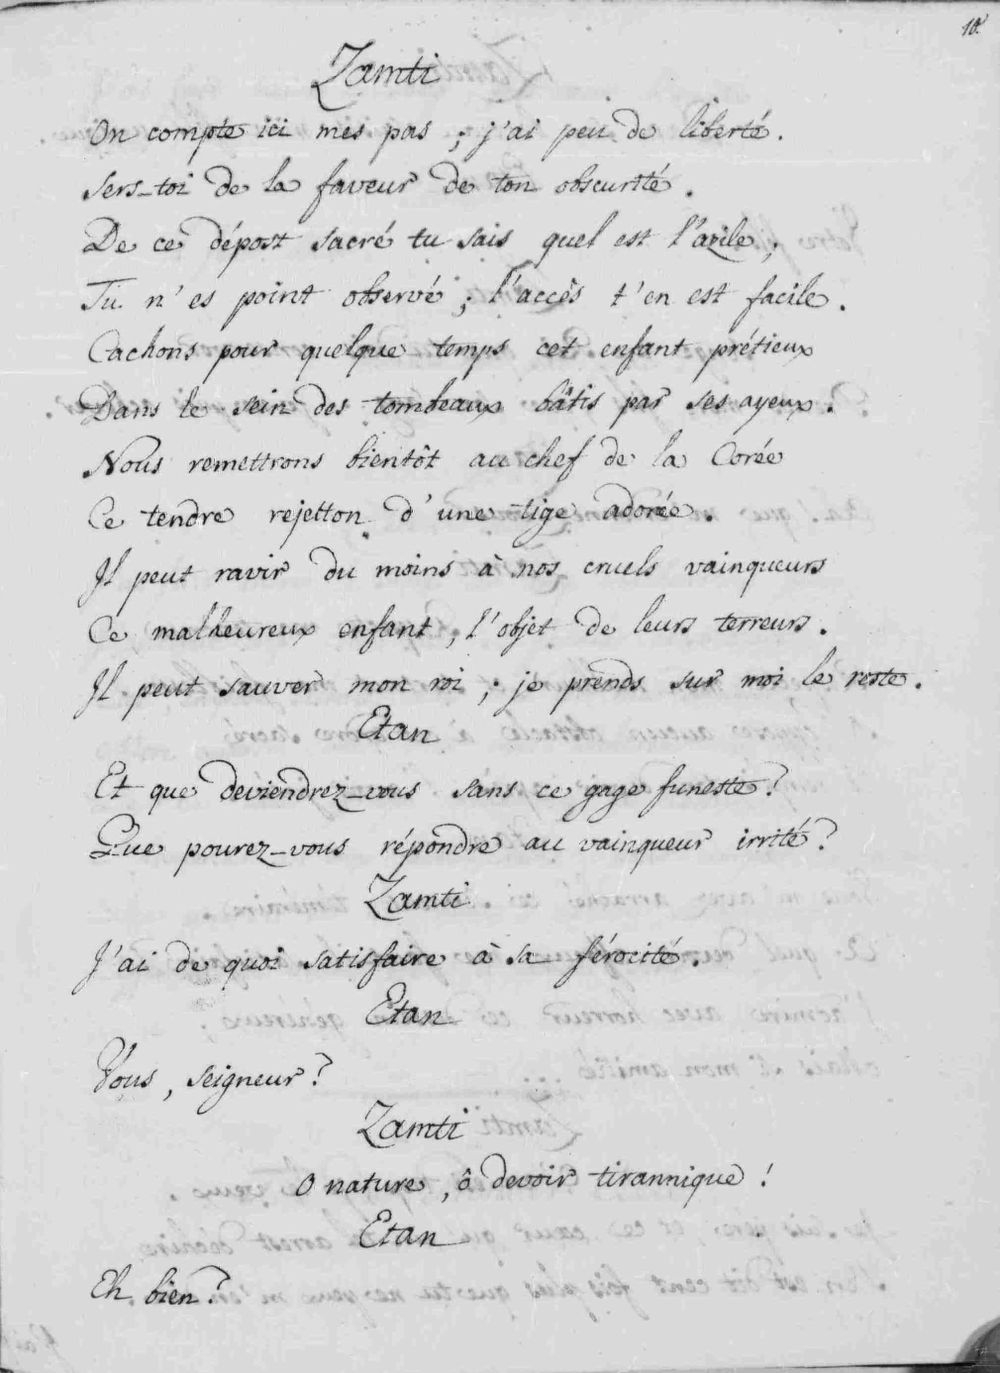 10.
Zamti
On compte ici mes pas ; j'ai peu de liberté.
sers-toi de la faveur de ton obscurité.
De ce dépost sacré tu sais quel est l'azile ;
Tu n'es point observé ; l'accès t'en est facile.
Cachons pour quelque temps cet enfant prétieux
Dans le sein des tombeaux bâtis par ses ayeux.
Nous remettrons bientôt au chef de la Corée
Ce tendre rejetton d'une tige adorée.
Il peut ravir du moins à nos cruels vainqueurs
Ce malheureux enfant, l'objet de leurs terreurs.
Il peut sauver mon roi ; je prends sur moi le reste.
Etan
Et que deviendrez-vous sans ce gage funeste ?
Que pourez-vous répondre au vainqueur irrité ?
Zamti
J'ai de quoi satisfaire à sa férocité.
Etan
Vous, seigneur ?
Zamti
O nature, ô devoir tirannique !
Etan
Eh bien ?